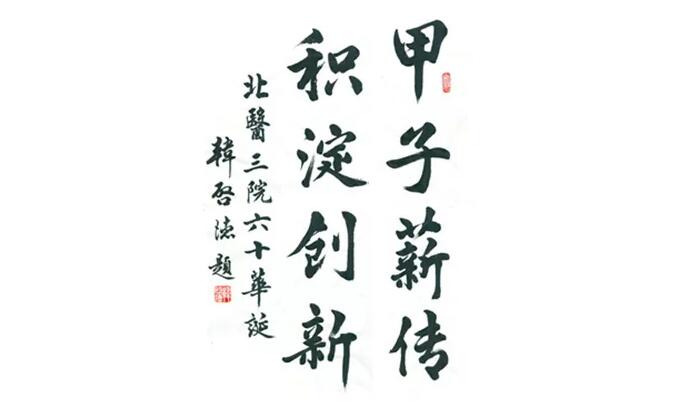 甲子薪传
积淀创新
北醫三院六十華誕
韓啓德題